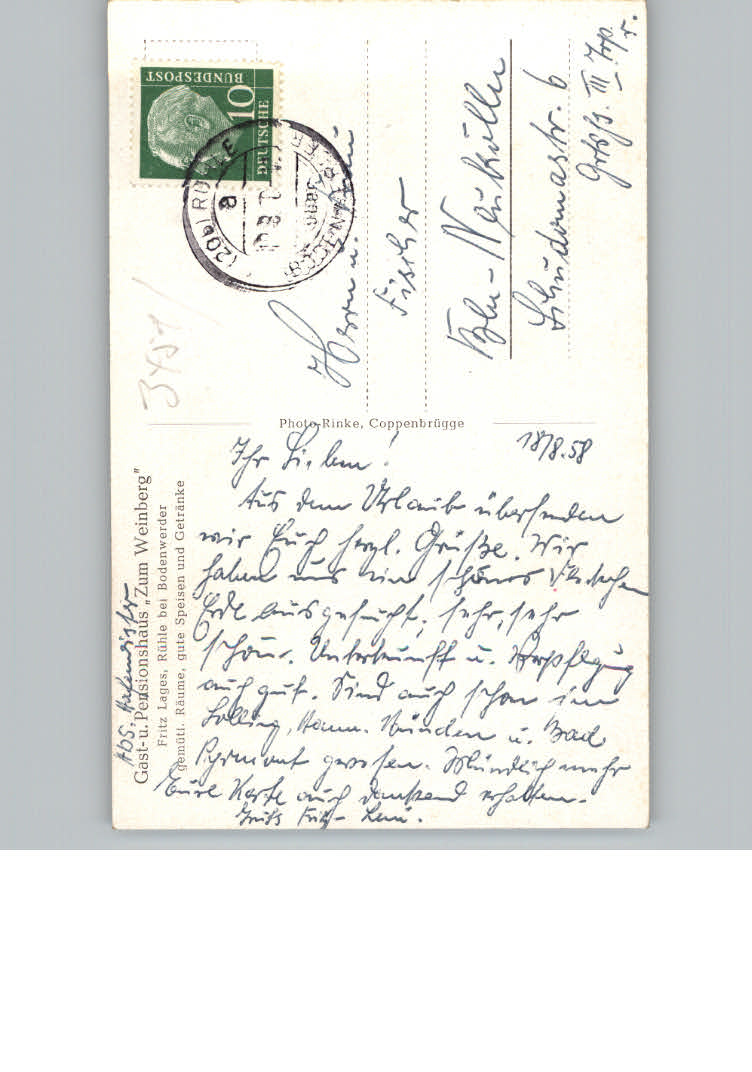 Gast- u. Pensionshaus „Zum Weinberg"
Fritz Lages, Rühle bei Bodenwerder
gemütl. Räume, gute Speisen und Getränke
Abs.
Photo-Rinke, Coppenbrügge
18/8.58
Ihr Lieben!
Aus dem Urlaub übersenden
wir Euch herzl. Grüße. Wir
haben uns ein schönes Fleckchen
Erde ausgesucht, sehr, sehr
schön. Unterkunft u. Verpflegung
auch gut. Sind auch schon im
Solling, Hann. Münden u. Bad
Pyrmont gewesen. Mündlich mehr
Eure Karte auch dankend erhalten.
Fritz - Leni.
DEUTSCHE
BUNDESPOST
10
(20b) RÜHLE
a
Herrn u. Frau
Fischer
Bln-Neukölln
Schudomastr. 6
III
3451